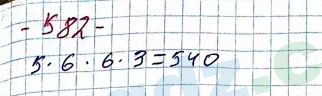 - 582 -
5 · 6 · 6 · 3 = 540